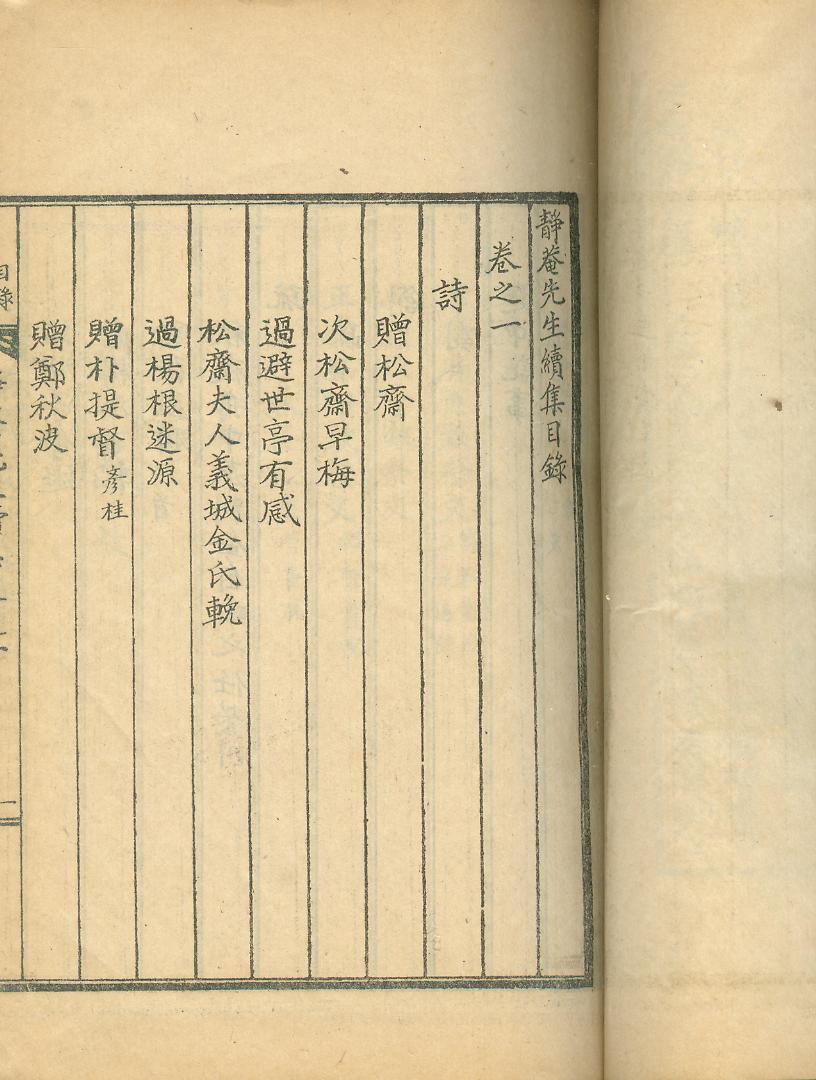 靜菴先生續集目錄
卷之一
詩
贈松齋
次松齋早梅
過避世亭有感
松齋夫人義城金氏輓
過楊根迷源
贈朴提督 彥桂
贈鄭秋波
目錄
一